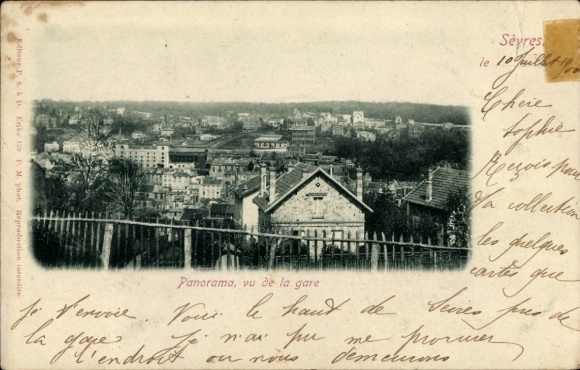 Sèvres,
le 10 Juillet 1900
Chère
Sophie
Reçois pour
ta collection
les quelques
cartes que
Panorama, vu de la gare
je t'envoie. Voici le haut de Sèvres près de
la gare je n'ai pu me procurer
l'endroit où nous demeurons
Editeur P. S. à D. Erika 129 P. M. phot. Reproduction interdite